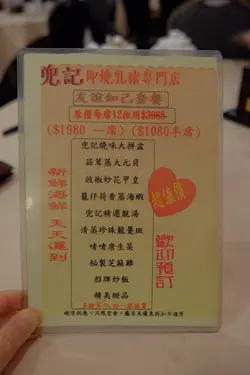 兜記即燒乳豬專門店
友誼知己套餐
原價每席12位用$3988
($1980 一席) ($1080半席)
兜記燒味大拼盆
蒜茸蒸大元貝
豉椒炒花甲皇
籠仔荷香蒸海蝦
兜記精選靚湯
清蒸珍珠龍躉斑
啫啫唐生菜
秘製芝麻雞
招牌炒飯
精美甜品
新鮮海鮮 天天運到
超值價
歡迎預訂